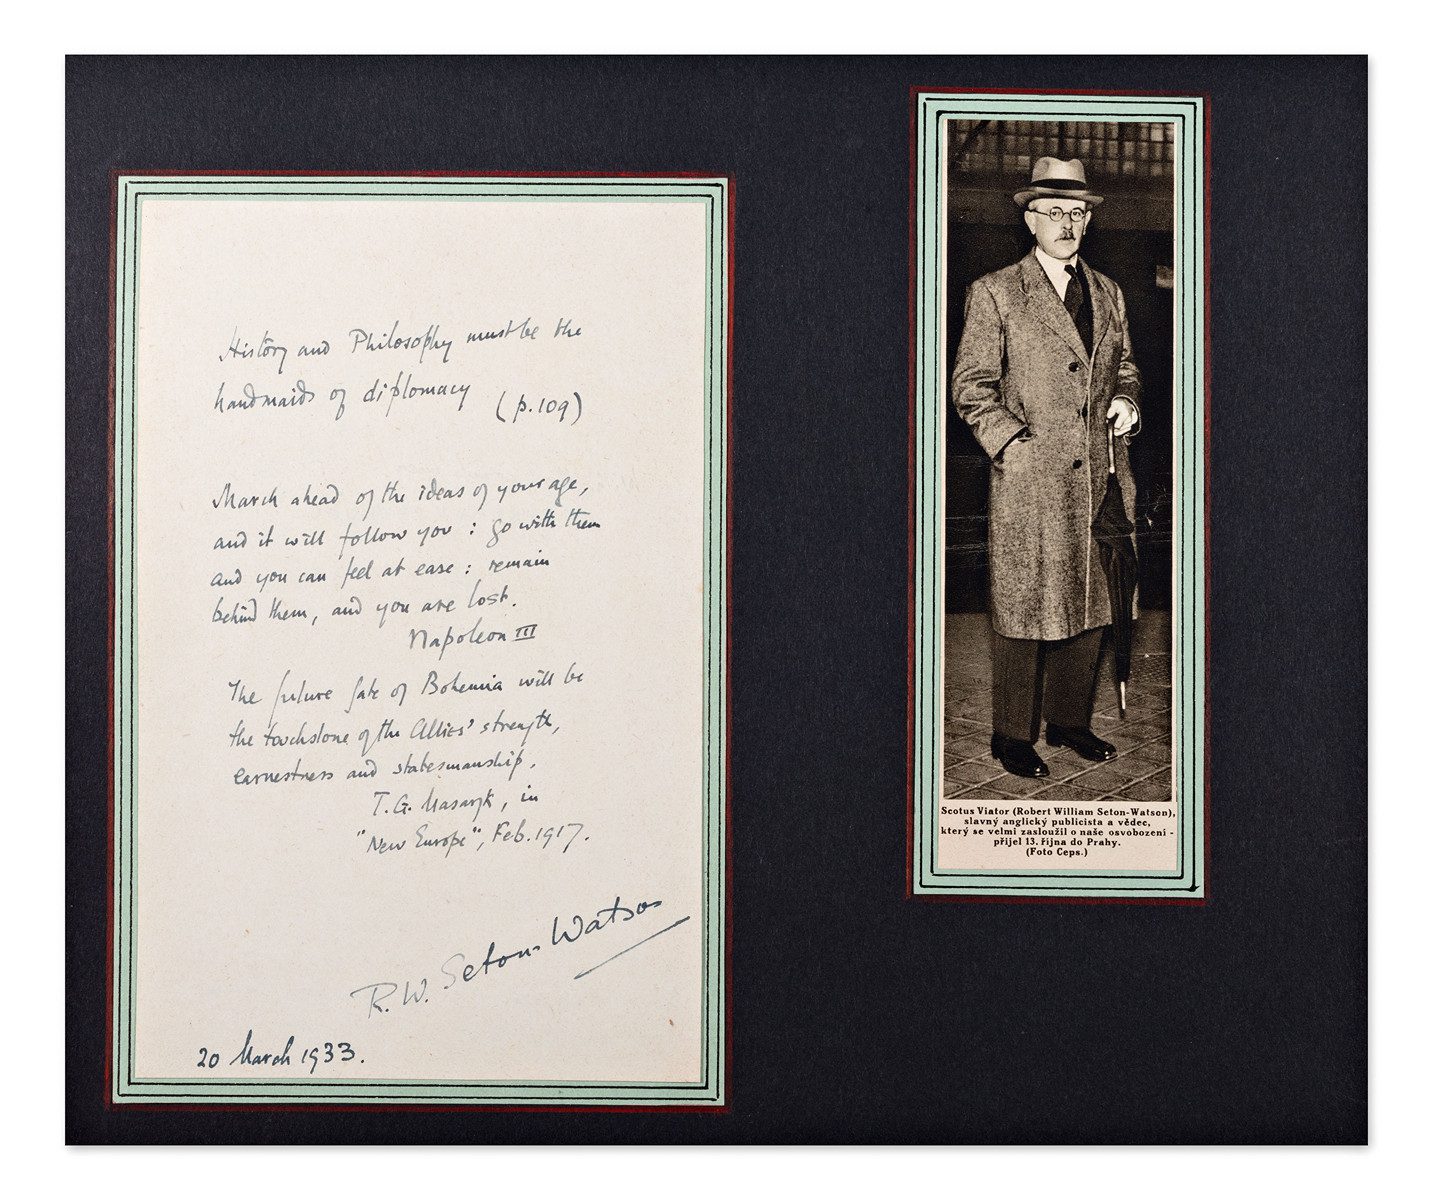 History and Philosophy must be the
handmaids of diplomacy (p. 109)
March ahead of the ideas of your age,
and it will follow you : go with them
and you can feel at ease : remain
behind them, and you are lost.
Napoleon III
The future fate of Bohemia will be
the touchstone of the Allies' strength,
earnestness and statesmanship.
T.G. Masaryk, in
"New Europe", Feb. 1917.
R.W. Seton-Watson
20 March 1933.
Scotus Viator (Robert William Seton-Watson),
slavný anglický publicista a vědec,
který se velmi zasloužil o naše osvobození -
přijel 13. října do Prahy.
(Foto Ceps.)